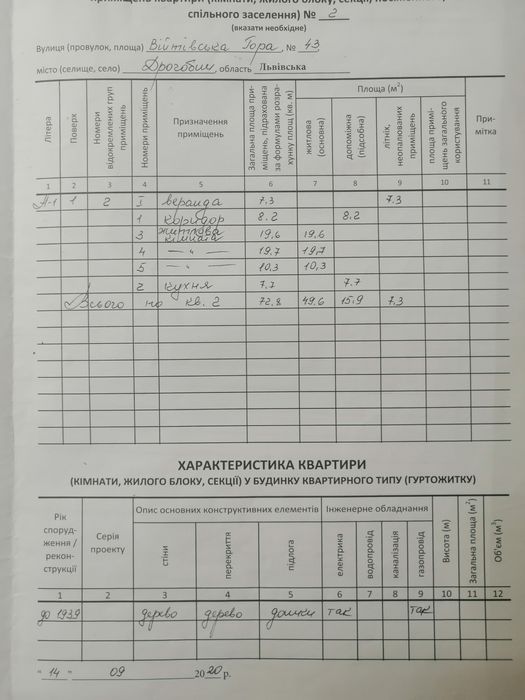 приміщень квартири (кімнати, жилого блоку, секції)
спільного заселення) № 2
(вказати необхідне)
Вулиця (провулок, площа) Війтівська Гора, № 43
місто (селище, село) Дрогобич, область Львівська
Літера Поверх Номери відокремлених груп приміщень Номери приміщень Призначення приміщень Загальна площа приміщень, підрахована за формулами розрахунку площ (кв. м) Площа (м²) Примітка
житлова (основна) допоміжна (підсобна) літніх, неопалюваних приміщень площа приміщень загального користування
1 2 3 4 5 6 7 8 9 10 11
А-1 1 2 I веранда 7,3 7.3
1 коридор 8.2 8.2
3 житлова кімната 19,6 19.6
4 — " — 19.7 19,7
5 — " — 10,3 10,3
2 кухня 7.7 7.7
Всього по кв. 2 72.8 49.6 15,9 7,3
ХАРАКТЕРИСТИКА КВАРТИРИ
(КІМНАТИ, ЖИЛОГО БЛОКУ, СЕКЦІЇ) У БУДИНКУ КВАРТИРНОГО ТИПУ (ГУРТОЖИТКУ)
Рік спорудження / реконструкції Серія проекту Опис основних конструктивних елементів Інженерне обладнання Висота (м) Загальна площа (м²) Об'єм (м³)
стіни перекриття підлога електрика водопровід каналізація газопровід
1 2 3 4 5 6 7 8 9 10 11 12
до 1939 дерево дерево дошки так так
" 14 " 09 2020 р.